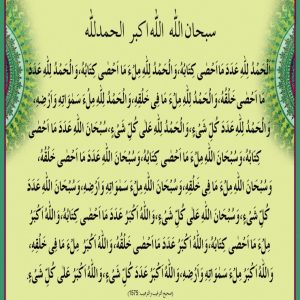 سبحان اللّٰه اللّٰه اکبر الحمدللّٰه
اَلْحَمْدُ لِلّٰهِ عَدَدَ مَا اَحْصٰى كِتَابُهُ، وَالْحَمْدُ لِلّٰهِ مِلْءَ مَا اَحْصٰى كِتَابُهُ، وَالْحَمْدُ لِلّٰهِ عَدَدَ
مَا اَحْصٰى خَلْقُهُ، وَالْحَمْدُ لِلّٰهِ مِلْءَ مَا فِى خَلْقِهِ، وَالْحَمْدُ لِلّٰهِ مِلْءَ سَمٰوَاتِهِ وَاَرْضِهِ،
وَالْحَمْدُ لِلّٰهِ عَدَدَ كُلِّ شَىْءٍ، وَالْحَمْدُ لِلّٰهِ عَلٰى كُلِّ شَىْءٍ، سُبْحَانَ اللّٰهِ عَدَدَ مَا اَحْصٰى
كِتَابُهُ، وَسُبْحَانَ اللّٰهِ مِلْءَ مَا اَحْصٰى كِتَابُهُ، وَسُبْحَانَ اللّٰهِ عَدَدَ مَا اَحْصٰى خَلْقُهُ،
وَسُبْحَانَ اللّٰهِ مِلْءَ مَا فِى خَلْقِهِ، وَسُبْحَانَ اللّٰهِ مِلْءَ سَمٰوَاتِهِ وَاَرْضِهِ، وَسُبْحَانَ اللّٰهِ عَدَدَ
كُلِّ شَىْءٍ، وَسُبْحَانَ اللّٰهِ عَلٰى كُلِّ شَىْءٍ، وَاللّٰهُ اَكْبَرُ عَدَدَ مَا اَحْصٰى كِتَابُهُ، وَاللّٰهُ اَكْبَرُ
مِلْءَ مَا اَحْصٰى كِتَابُهُ، وَاللّٰهُ اَكْبَرُ عَدَدَ مَا اَحْصٰى خَلْقُهُ، وَاللّٰهُ اَكْبَرُ مِلْءَ مَا فِى خَلْقِهِ،
وَاللّٰهُ اَكْبَرُ مِلْءَ سَمٰوَاتِهِ وَاَرْضِهِ، وَاللّٰهُ اَكْبَرُ عَدَدَ كُلِّ شَىْءٍ، وَاللّٰهُ اَكْبَرُ عَلٰى كُلِّ شَىْءٍ.
(صحیح الترغیب والترھیب: 1575)